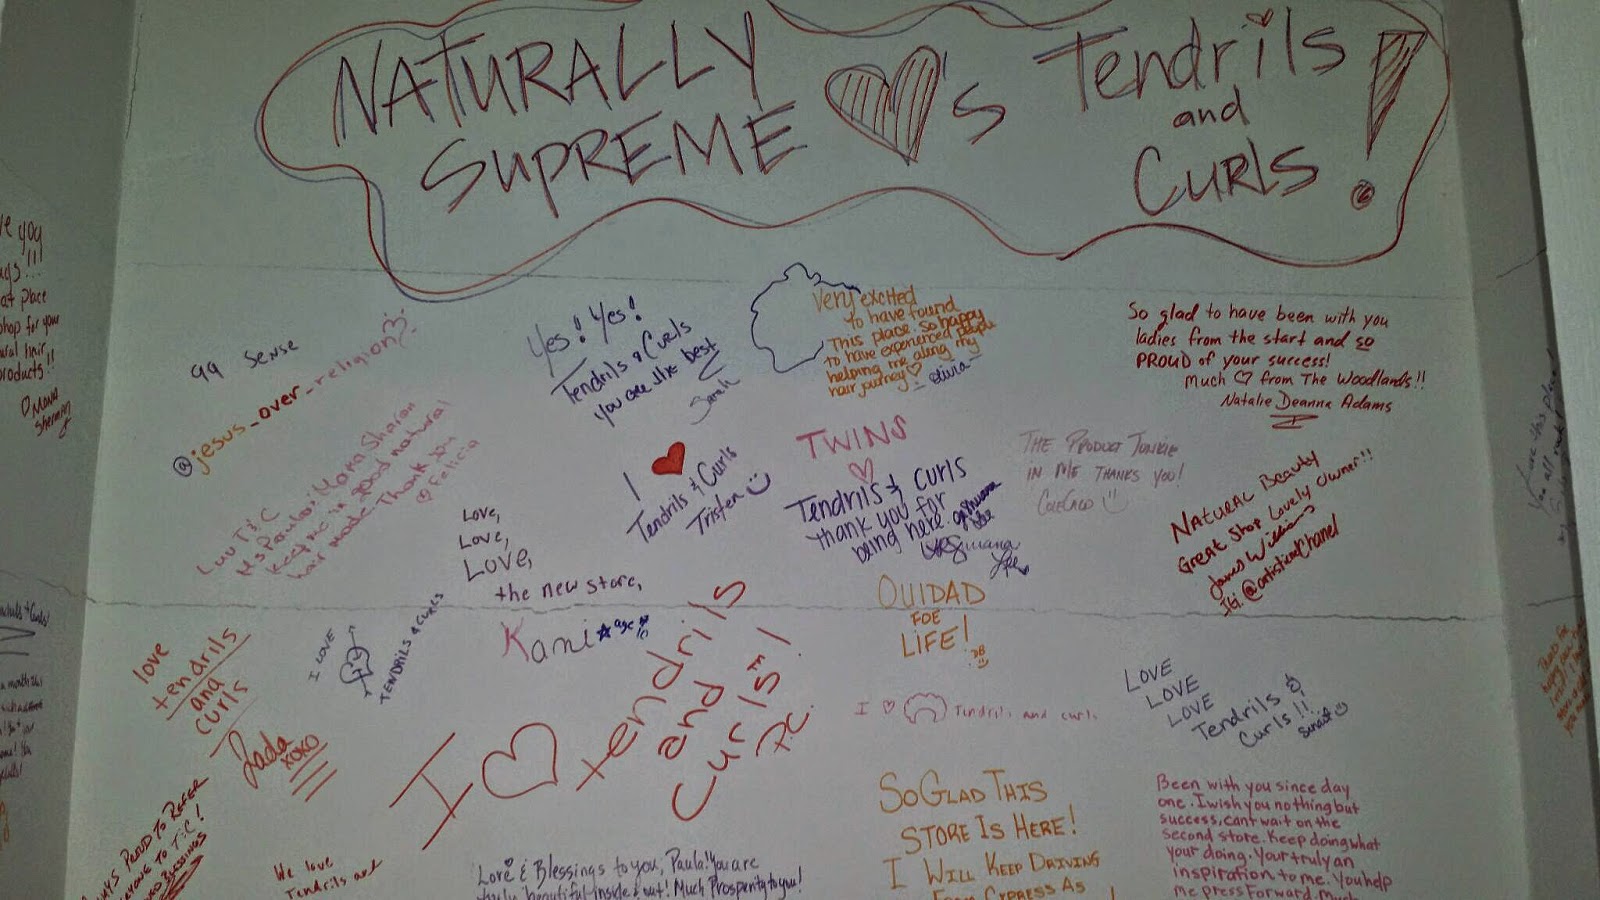 NATURALLY
SUPREME
♥'s
Tendrils
and
Curls!
Yes! Yes!
Tendrils & Curls
you are the best
Sarah
Very excited
to have found
this place. So happy
to have experienced people
helping me along my
hair journey ♡
- Olivia -
So glad to have been with you
ladies from the start and so
PROUD of your success!
Much ♡ from The Woodlands!!
Natalie Deanna Adams
you
at place
shop for your
hair
products!!
♡ Mona
Sherman
99 Sense
@jesus_over_religion
Luv T&C
Ms Paula
Keep me in good natural
hair mode. Thank you
Felicia
I ♥
Tendrils & Curls
Tristen
TWINS
♡
Tendrils & Curls
thank you for
being here.
THE PRODUCT JUNKIE
IN ME THANKS YOU!
NATURAL Beauty
Great Shop Lovely Owner!!
James Williams
IG: @artisticmChanel
Love,
Love,
Love,
the new store,
Kani
OUIDAD
FOE
LIFE!
DB
love
tendrils
and
curls
Jada
XOXO
I LOVE
TENDRILS & CURLS
I ♡ tendrils
and
Curls!
I ♡ Tendrils and curls
LOVE
LOVE
LOVE
Tendrils &
Curls!!
SO GLAD THIS
STORE IS HERE!
I WILL KEEP DRIVING
FROM CYPRESS AS
Been with you since day
one. I wish you nothing but
success, cant wait on the
second store. Keep doing what
your doing. Your truly an
inspiration to me. You help
me press Forward. Much
PROUD TO REFER
EVERYONE TO T&C!
BLESSINGS
We love
Tendrils and
Love & Blessings to you, Paula! You are
truly beautiful inside & out! Much Prosperity to you!